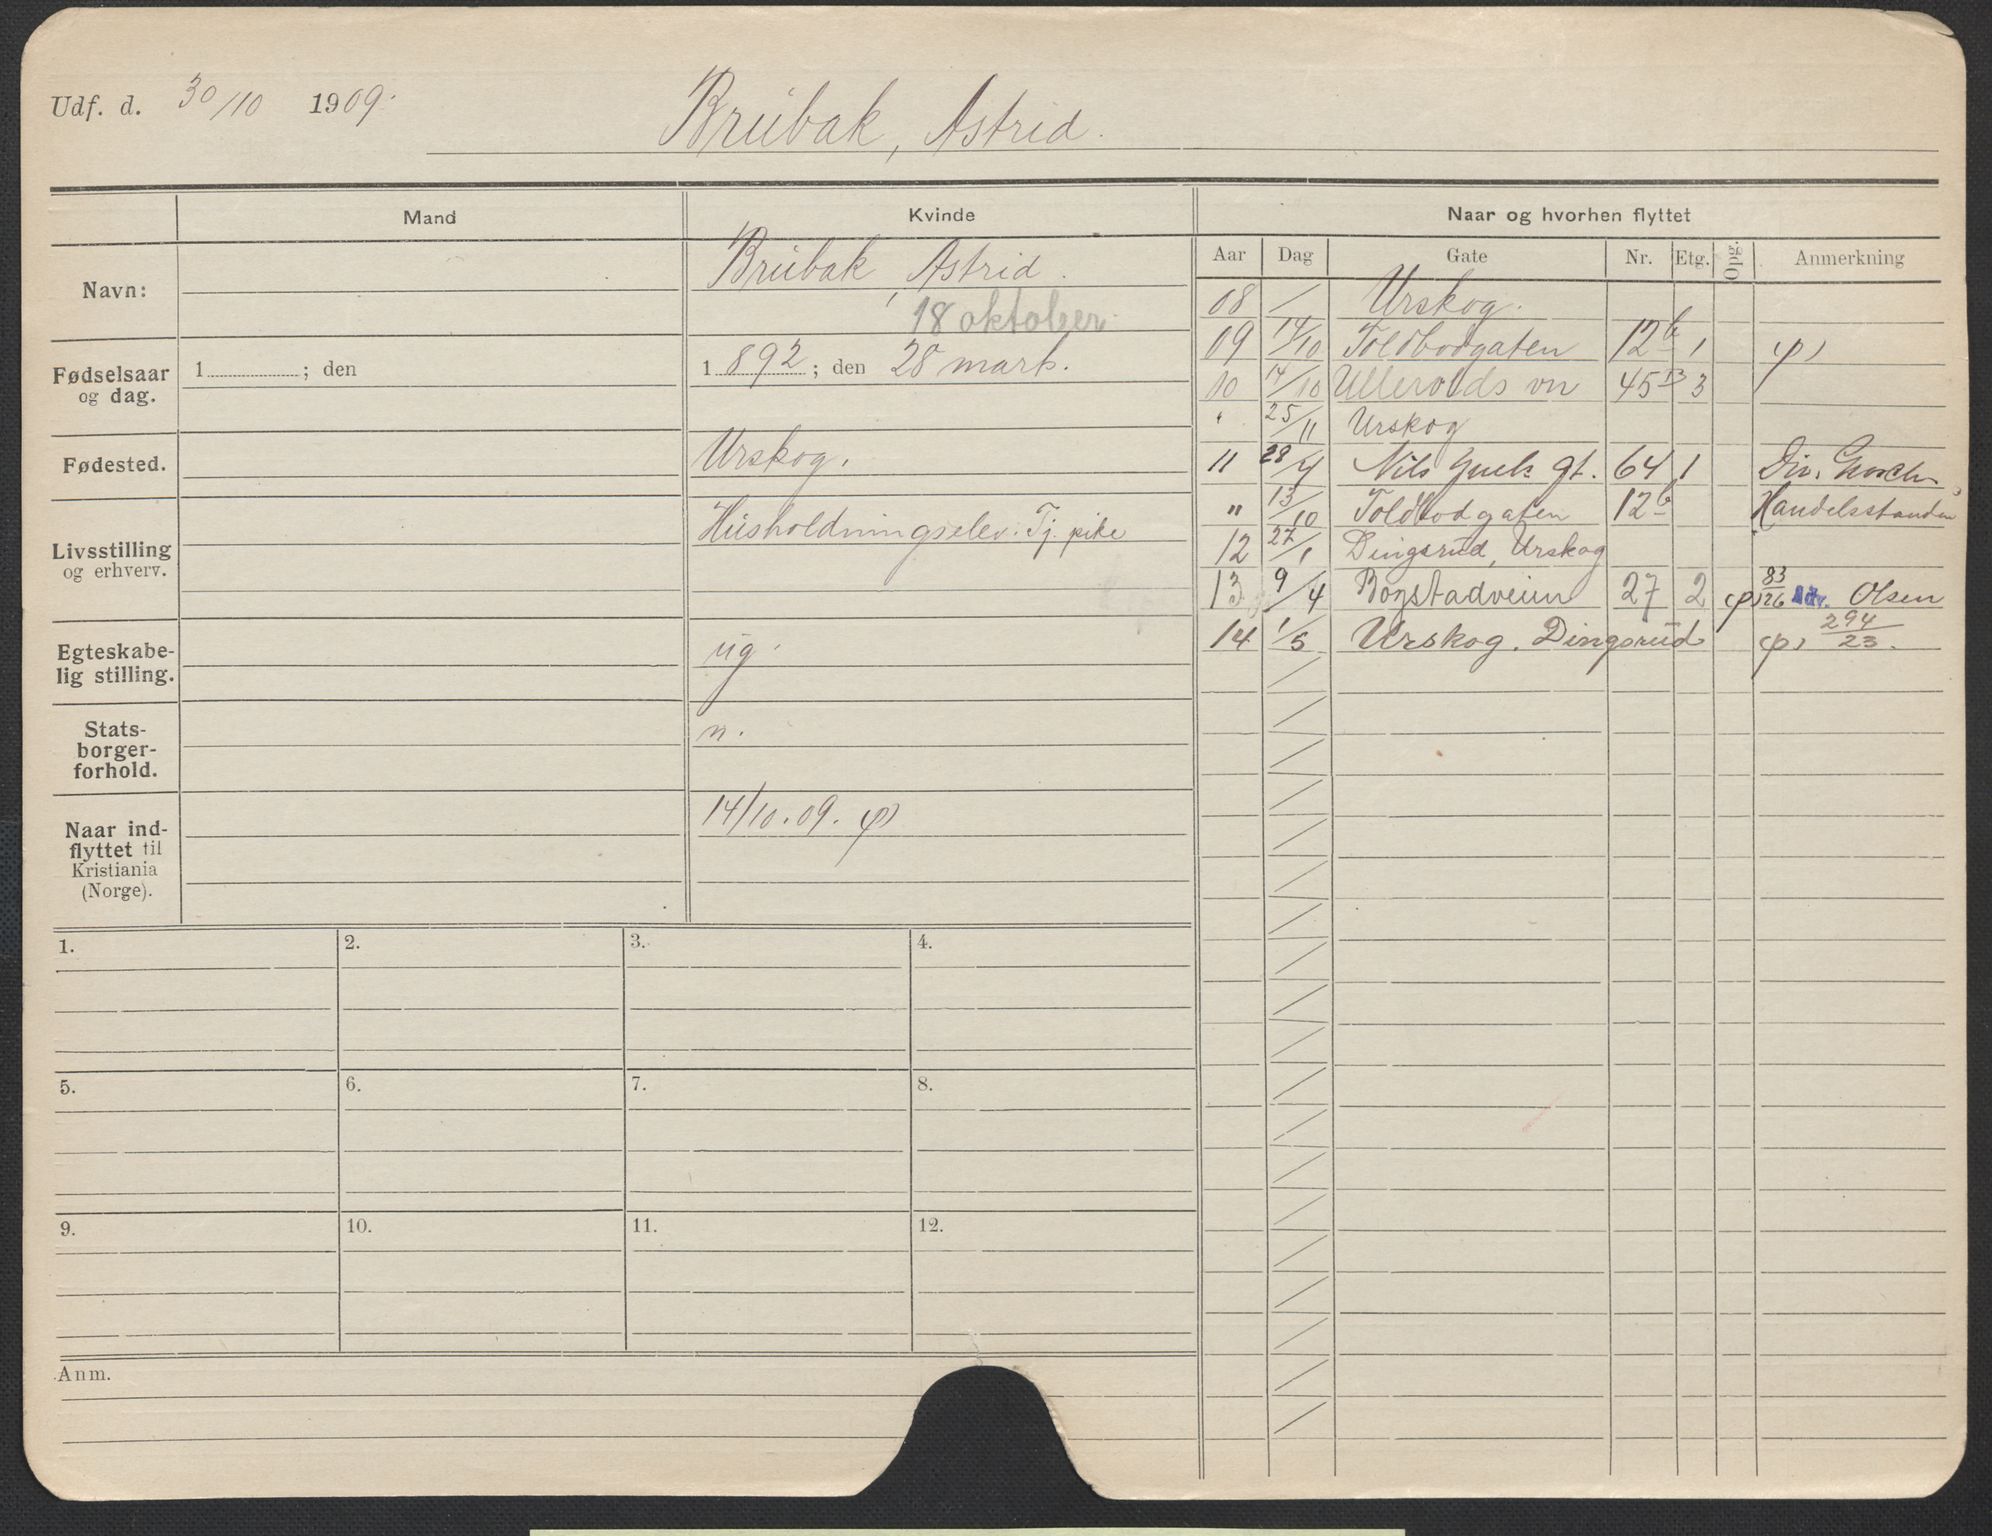 Udf. d. 30/10 1909.
Brubak, Astrid.
Mand
Kvinde
Naar og hvorhen flyttet
Aar Dag Gate Nr. Etg. Opg. Anmerkning
Navn:
Brubak, Astrid.
18 oktober
Fødselsaar og dag.
1 ; den
1892; den 28 marts.
Fødested.
Urskog.
Livsstilling og erhverv.
Husholdningselev. Tj. pike
Egteskabe-
lig stilling.
ug.
Stats-
borger-
forhold.
n.
Naar ind-
flyttet til
Kristiania
(Norge).
14/10.09. φ)
08 / Urskog.
09 14/10 Toldbodgaten 12b 1 φ)
10 14/10 Ullevolds vn 45 13 3
" 25/11 Urskog
11 28/4 Nils Juels gt. 64 1 Div.
" 13/10 Toldbodgaten 12b Handelsstanden
12 27/1 Dingsrud, Urskog
13 9/4 Bogstadveien 27 2 φ) 83/126 Adv. Olsen
14 1/5 Urskog. Dingsrud φ) 294/23.
1. 2. 3. 4.
5. 6. 7. 8.
9. 10. 11. 12.
Anm.